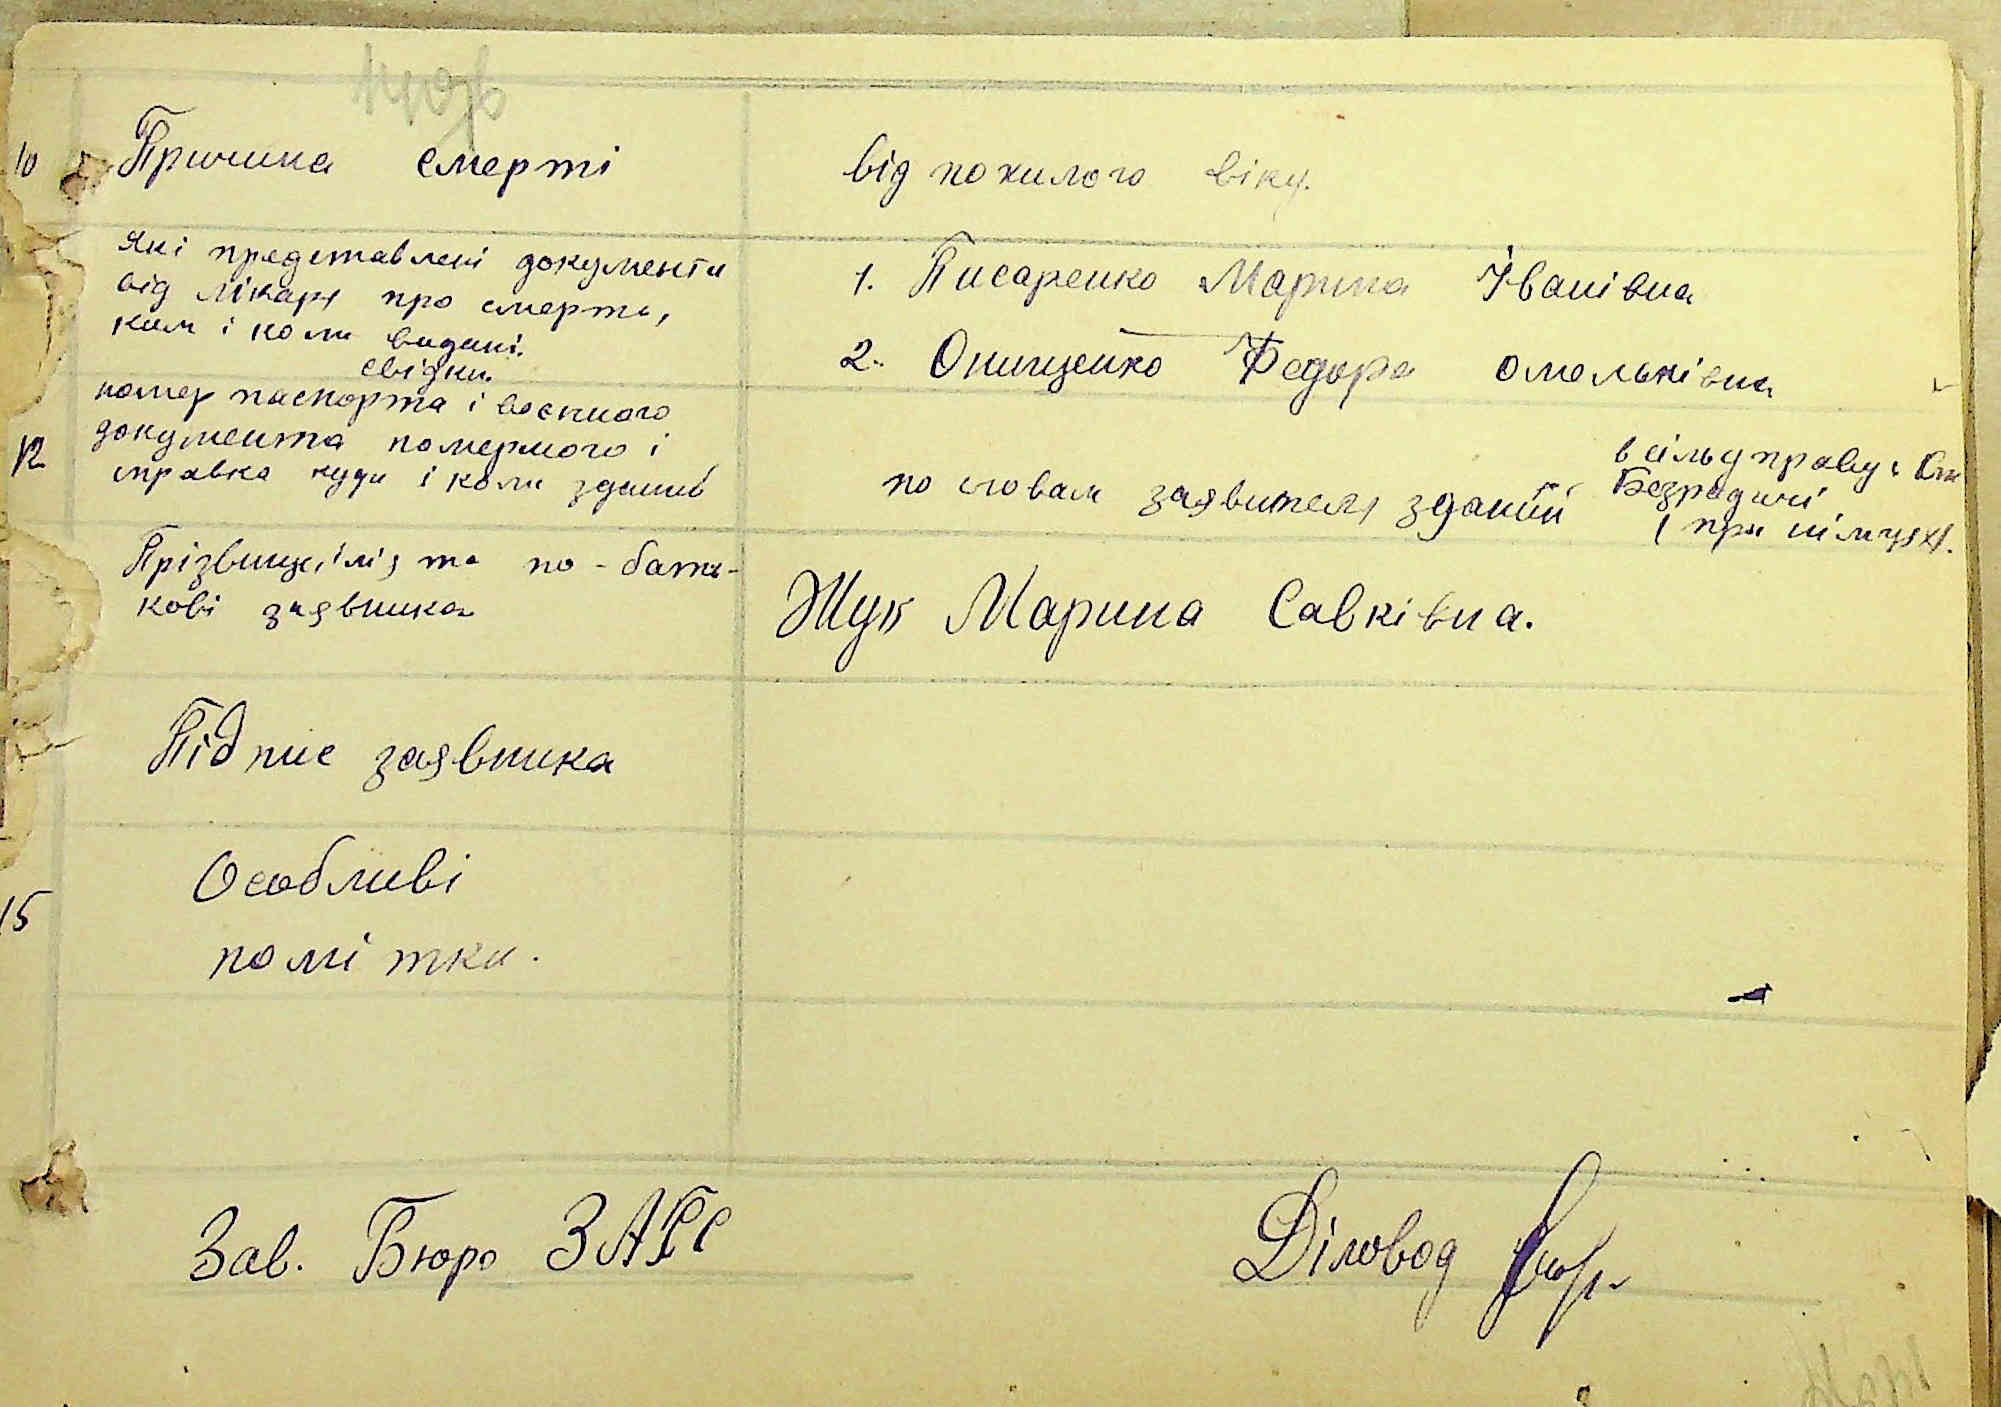 10 Причина смерті
від похилого віку.
Які представлені документи
від лікаря про смерть,
ким і коли видані.
свідки.
1. Писаренко Марина Іванівна
2. Онищенко Федора Омельківна
12 номер паспорта і воєнного
документа помермого і
справка куди і коли здании
по словам заявителя зданий в сільуправу с. Ст.
Безрадичі
(при німцях).
Прізвище, ім'я та по-бать-
кові заявника
Жук Марина Савківна.
Підпис заявника
15 Особливі
помітки.
Зав. Бюро ЗАГС
Діловод